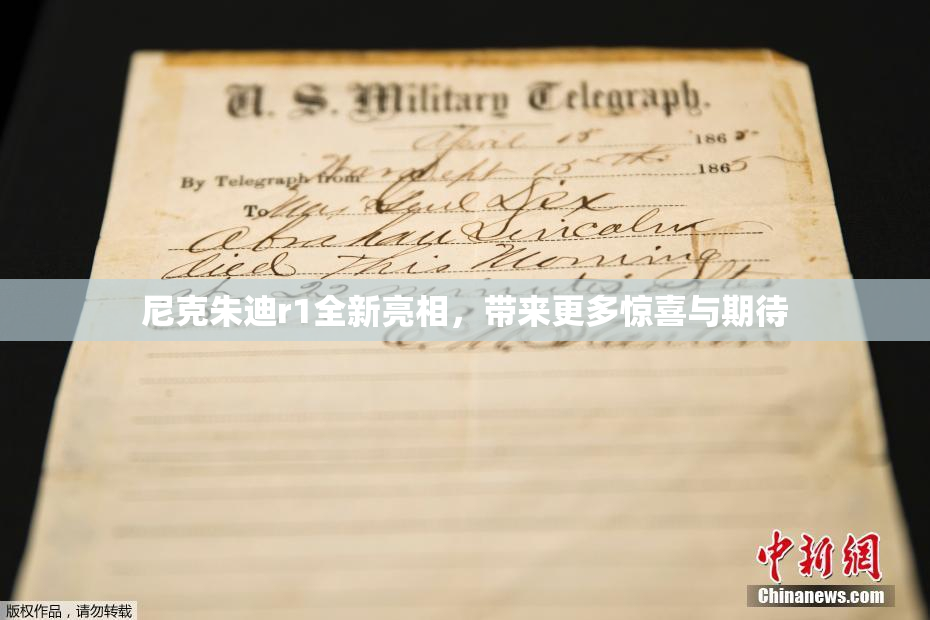 U. S. Military Telegraph.
April 15 1865
By Telegraph from War Dept 15th 1865
To Maj Genl Dix
Abraham Lincoln
died This Morning
at 22 minutes after
尼克朱迪r1全新亮相，带来更多惊喜与期待
E. M. Stanton
中新网
Chinanews.com
版权作品，请勿转载